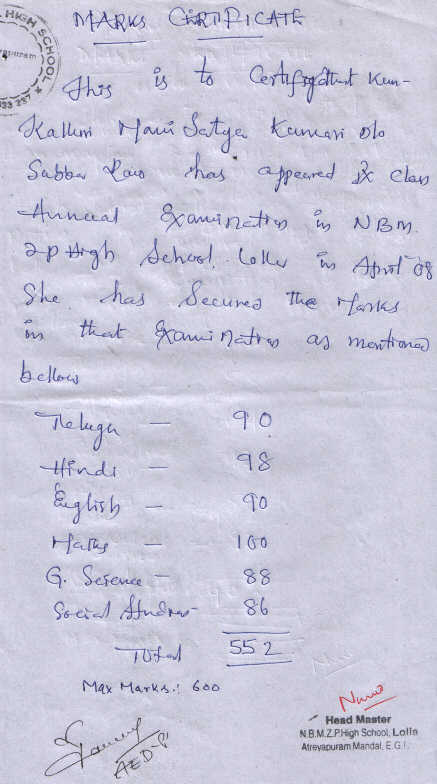 MARKS CERTIFICATE
HIGH SCHOOL
This is to Certify that Kum-
Kalluri Mani Satya Kumari D/o
Subba Rao has appeared IX class
Annual Examination in N.B.M.
Z.P High School. Lolla in April 08
She has Secured the Marks
in that Examination as mentioned
bellow
Telugu — 90
Hindi — 98
English — 90
Maths — 100
G. Science - 88
Social Studies - 86
Total 552
Max Marks.: 600
Head Master
N.B.M.Z.P.High School, Lolla
Atreyapuram Mandal, E.G.